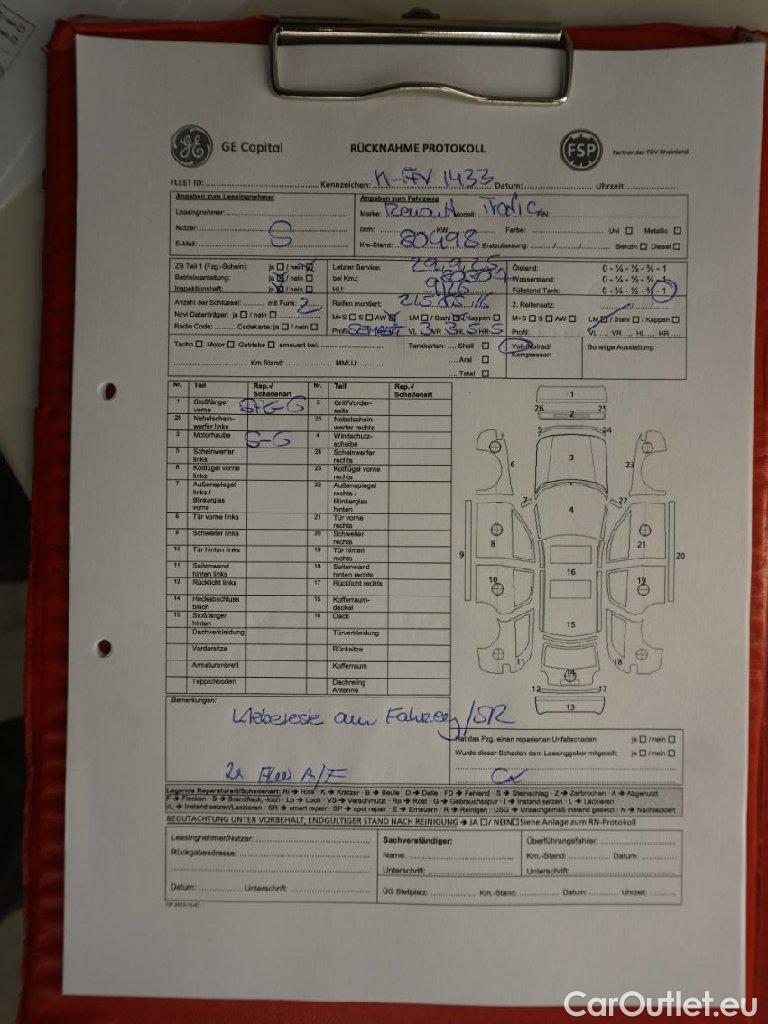 GE Capital RÜCKNAHME PROTOKOLL FSP Partner der TÜV Rheinland
FLEET ID: Kennzeichen: K-FV 1433 Datum: Uhrzeit:
Angaben zum Leasingnehmer Angaben zum Fahrzeug
Leasingnehmer: Marke: Renault Modell: Trafic
Nutzer: ccm: KW: Farbe: Uni Metallic
E-Mail: S Km-Stand: 80498 Erstzulassung: Benzin Diesel
ZB Teil 1 (Fzg.-Schein): ja / nein Letzter Service: Ölstand: 0 - ¼ - ½ - ¾ - 1
Betriebsanleitung: ja / nein bei Km.: Wasserstand: 0 - ¼ - ½ - ¾ - 1
Inspektionsheft: ja / nein HU: Füllstand Tank: 0 - ¼ - ½ - ¾ - 1
Anzahl der Schlüssel: mit Funk: 2 Reifen montiert: 2. Reifensatz:
Navi Datenträger: ja / nein M+S S AW LM / Stahl / Kappen M+S S AW LM / Stahl / Kappen
Radio Code: Codekarte: ja / nein Profil: VL 3 VR 3 HL 5 HR 5 Profil: VL VR HL HR
Tacho Motor Getriebe erneuert bei: Tankkarten: Shell Kompressor Sonstige Ausstattung:
Km Stand: MM/JJ Aral
Total
Nr. Teil Rep.-/ Schadenart Nr. Teil Rep.-/ Schadenart
1 Stoßfänger vorne S+G-G 2 Grill/Vorderseite
26 Nebelscheinwerfer links 25 Nebelscheinwerfer rechts
3 Motorhaube S-G 4 Windschutzscheibe
5 Scheinwerfer links 24 Scheinwerfer rechts
6 Kotflügel vorne links 23 Kotflügel vorne rechts
7 Außenspiegel links / Blinkerglas vorne 22 Außenspiegel rechts / Blinkerglas hinten
8 Tür vorne links 21 Tür vorne rechts
9 Schweller links 20 Schweller rechts
10 Tür hinten links 19 Tür hinten rechts
11 Seitenwand hinten links 18 Seitenwand hinten rechts
12 Rücklicht links 17 Rücklicht rechts
14 Heckabschlussblech 15 Kofferraumdeckel
13 Stoßfänger hinten 16 Dach
Dachverkleidung Türverkleidung
Vordersitze Rücksitze
Armaturenbrett Kofferraum
Teppichboden Dachreling Antenne
1
26 25
2
5 24
3
6 23
7 27
4
8 21
9 20
16
10 19
15
11 18
14
12 17
13
Bemerkungen:
Klebereste am Fahrzeug / SR
Hat das Fzg. einen reparierten Unfallschaden ja / nein
Wurde dieser Schaden dem Leasinggeber mitgeteilt: ja / nein
Legende Reparaturart/Schadenart: Ri → Riss - K → Kratzer - B → Beule - D → Delle - FD → Fehlend - S → Steinschlag - Z → Zerbrochen - A → Abgenutzt
F → Flecken - B → Brandfleck, -loch - Lo → Loch - VS → Verschmutzt - Ro → Rost - G → Gebrauchsspur - I → Instand setzen - L → Lackieren
IL → Instand setzen/Lackieren - SR → smart repair - SP → spot repair - E → Erneuern - R → Reinigen - USG → Unsachgemäß instand gesetzt - N → Nachlackiert
BEGUTACHTUNG UNTER VORBEHALT; ENDGÜLTIGER STAND NACH REINIGUNG → JA / NEIN Siehe Anlage zum RN-Protokoll
Leasingnehmer/Nutzer: Sachverständiger: Überführungsfahrer:
Rückgabeadresse: Name: Km.-Stand: Datum:
Unterschrift: Unterschrift:
Datum: Unterschrift: ÜG Stellplatz: Km.-Stand: Datum: Uhrzeit:
CarOutlet.eu